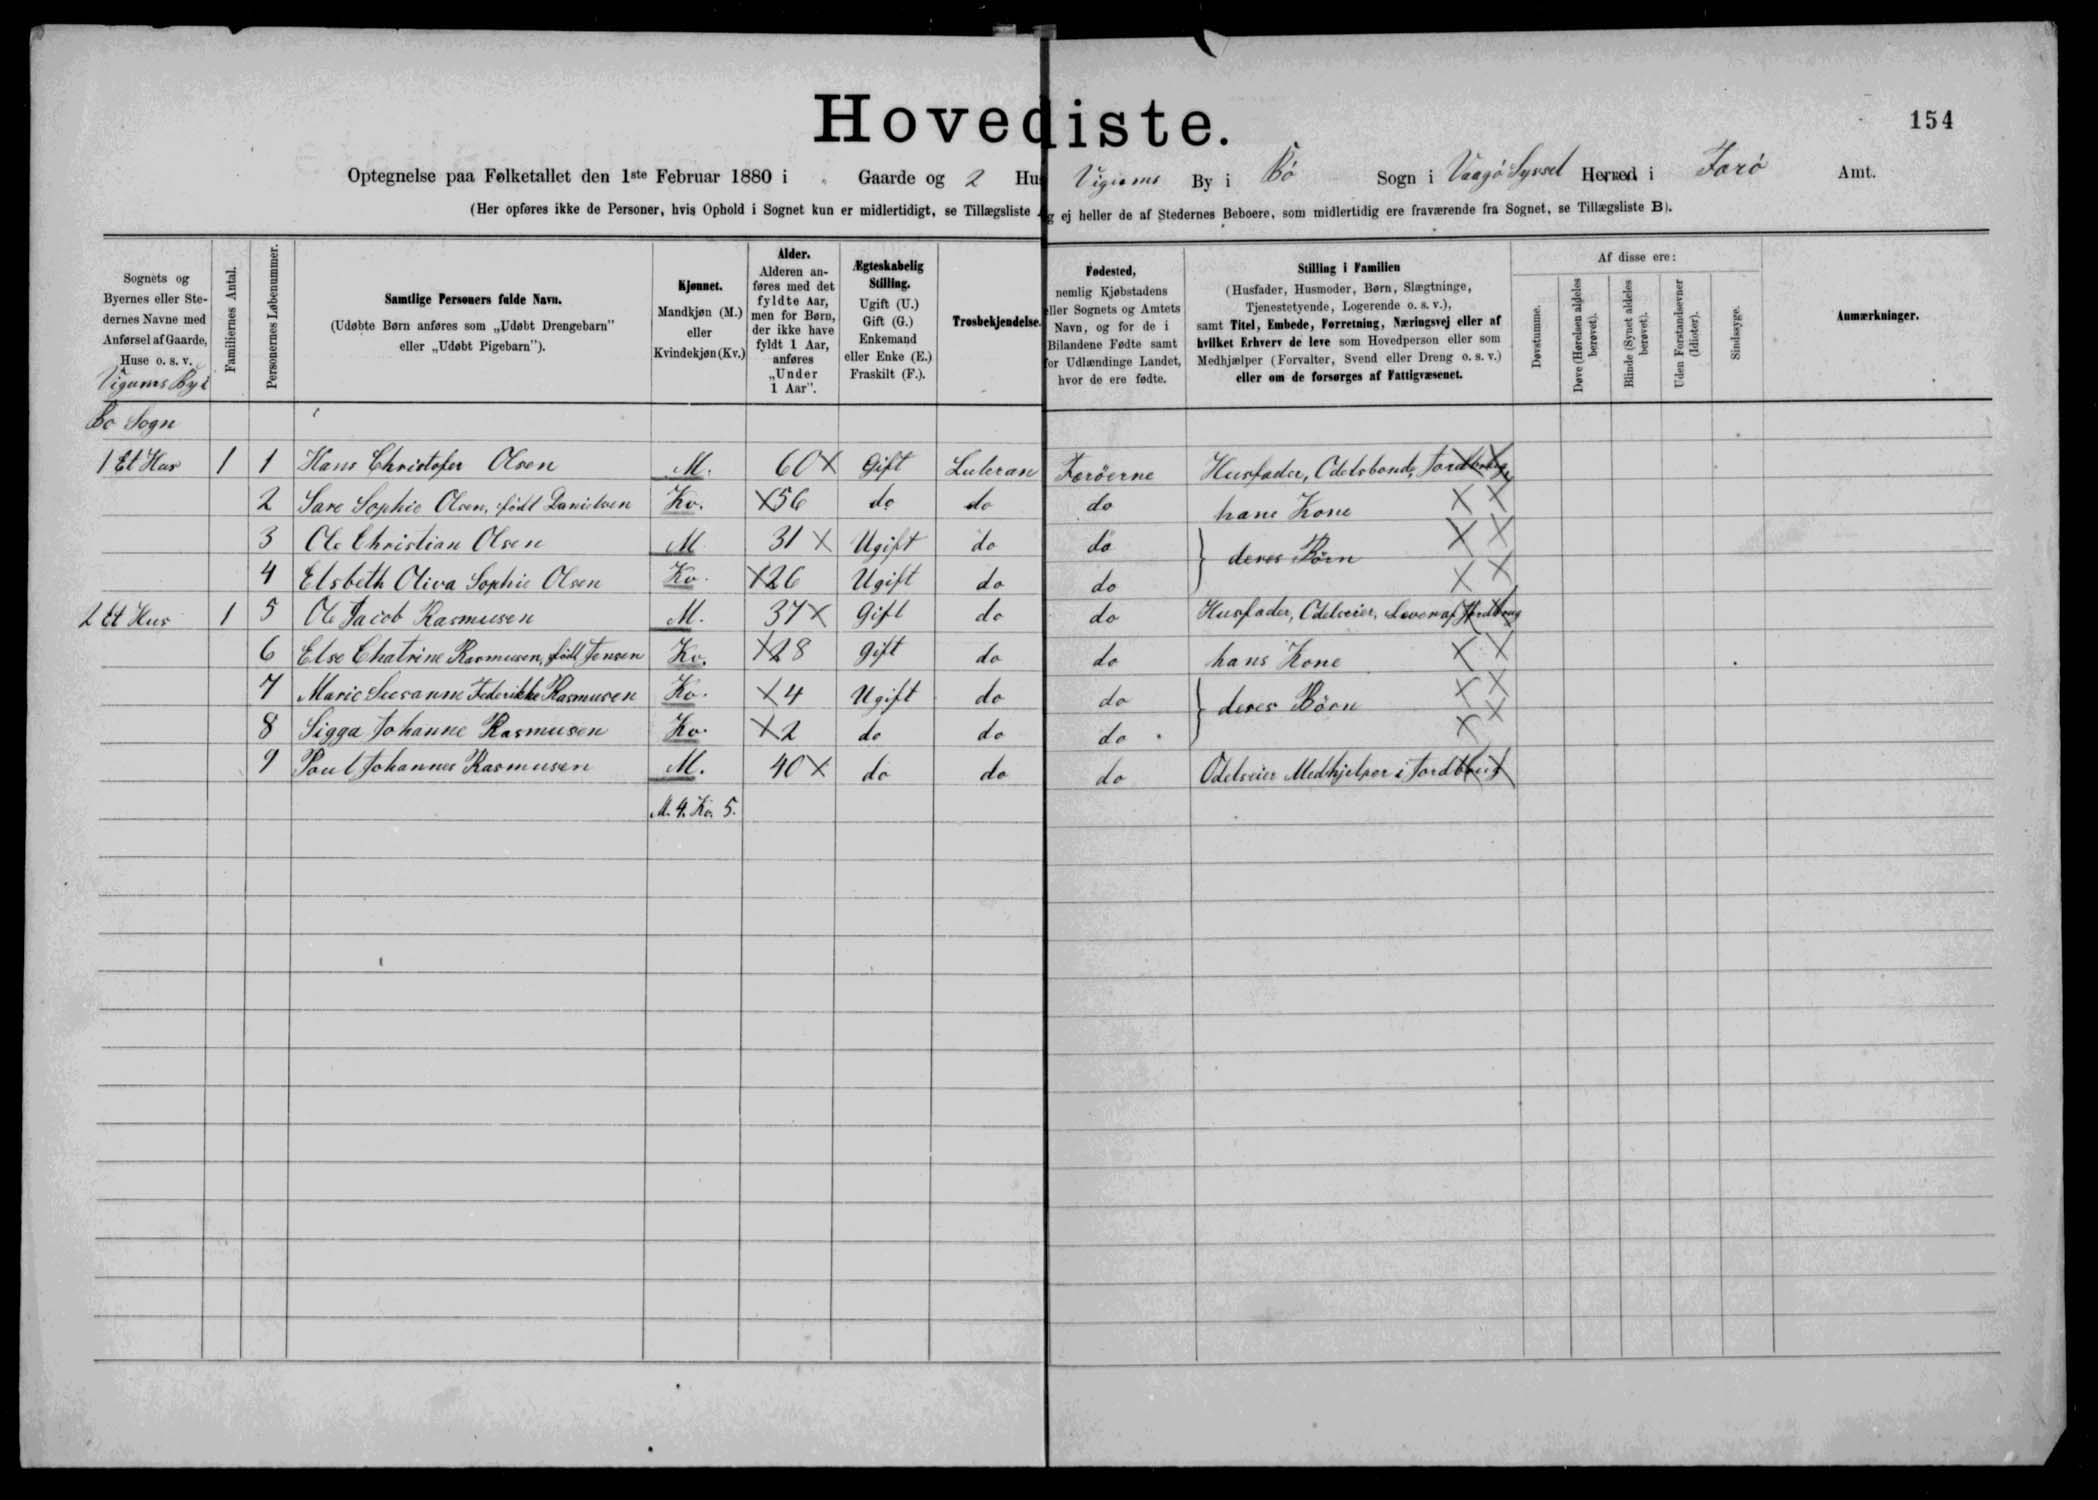 Hovediste.
154
Optegnelse paa Folketallet den 1ste Februar 1880 i Gaarde og 2 Hu Vigums By i Bö Sogn i Vaagö Syssel Herred i Farö Amt.
(Her opføres ikke de Personer, hvis Ophold i Sognet kun er midlertidigt, se Tillægsliste g ej heller de af Stedernes Beboere, som midlertidig ere fraværende fra Sognet, se Tillægsliste B).
Sognets og Byernes eller Stedernes Navne med Anførsel af Gaarde, Huse o. s. v.
Familiernes Antal.
Personernes Løbenummer.
Samtlige Personers fulde Navn.
(Udøbte Børn anføres som „Udøbt Drengebarn” eller „Udøbt Pigebarn”).
Kjønnet.
Mandkjøn (M.) eller Kvindekjøn (Kv.)
Alder.
Alderen anføres med det fyldte Aar, men for Børn, der ikke have fyldt 1 Aar, anføres „Under 1 Aar”.
Ægteskabelig Stilling.
Ugift (U.) Gift (G.) Enkemand eller Enke (E.) Fraskilt (F.).
Trosbekjendelse.
Fødested,
nemlig Kjøbstadens eller Sognets og Amtets Navn, og for de i Bilandene Fødte samt for Udlændinge Landet, hvor de ere fødte.
Stilling i Familien
(Husfader, Husmoder, Børn, Slægtninge, Tjenestetyende, Logerende o. s. v.),
samt Titel, Embede, Forretning, Næringsvej eller af hvilket Erhverv de leve som Hovedperson eller som Medhjælper (Forvalter, Svend eller Dreng o. s. v.)
eller om de forsørges af Fattigvæsenet.
Af disse ere:
Døvstumme.
Døve (Hørelsen aldeles berøvet).
Blinde (Synet aldeles berøvet).
Uden Forstandsevner (Idioter).
Sindssyge.
Anmærkninger.
Vigums By i
Bö Sogn
1 Et Hus 1 1 Hans Christofer Olsen M. 60 X Gift Luteran Færöerne Husfader, Odelsbonde, Jordbrug
2 Sare Sophie Olsen, född Danielsen Kv. X 56 do do do hans Kone X X
3 Ole Christian Olsen M 31 X Ugift do do } deres Börn X X
4 Elsbeth Oliva Sophie Olsen Kv. X 26 Ugift do do X X
2 Et Hus 1 5 Ole Jacob Rasmusen M. 37 X Gift do do Husfader, Odelseier, Lever af Jordbrug
6 Else Chatrine Rasmusen, född Jensen Kv. X 28 Gift do do hans Kone X X
7 Marie Susanne Federikke Rasmusen Kv. X 4 Ugift do do } deres Börn X X
8 Sigga Johanne Rasmusen Kv. X 2 do do do X X
9 Poul Johannes Rasmusen M. 40 X do do do Odelseier Medhjelper i Jordbrug
M. 4. Kv. 5.